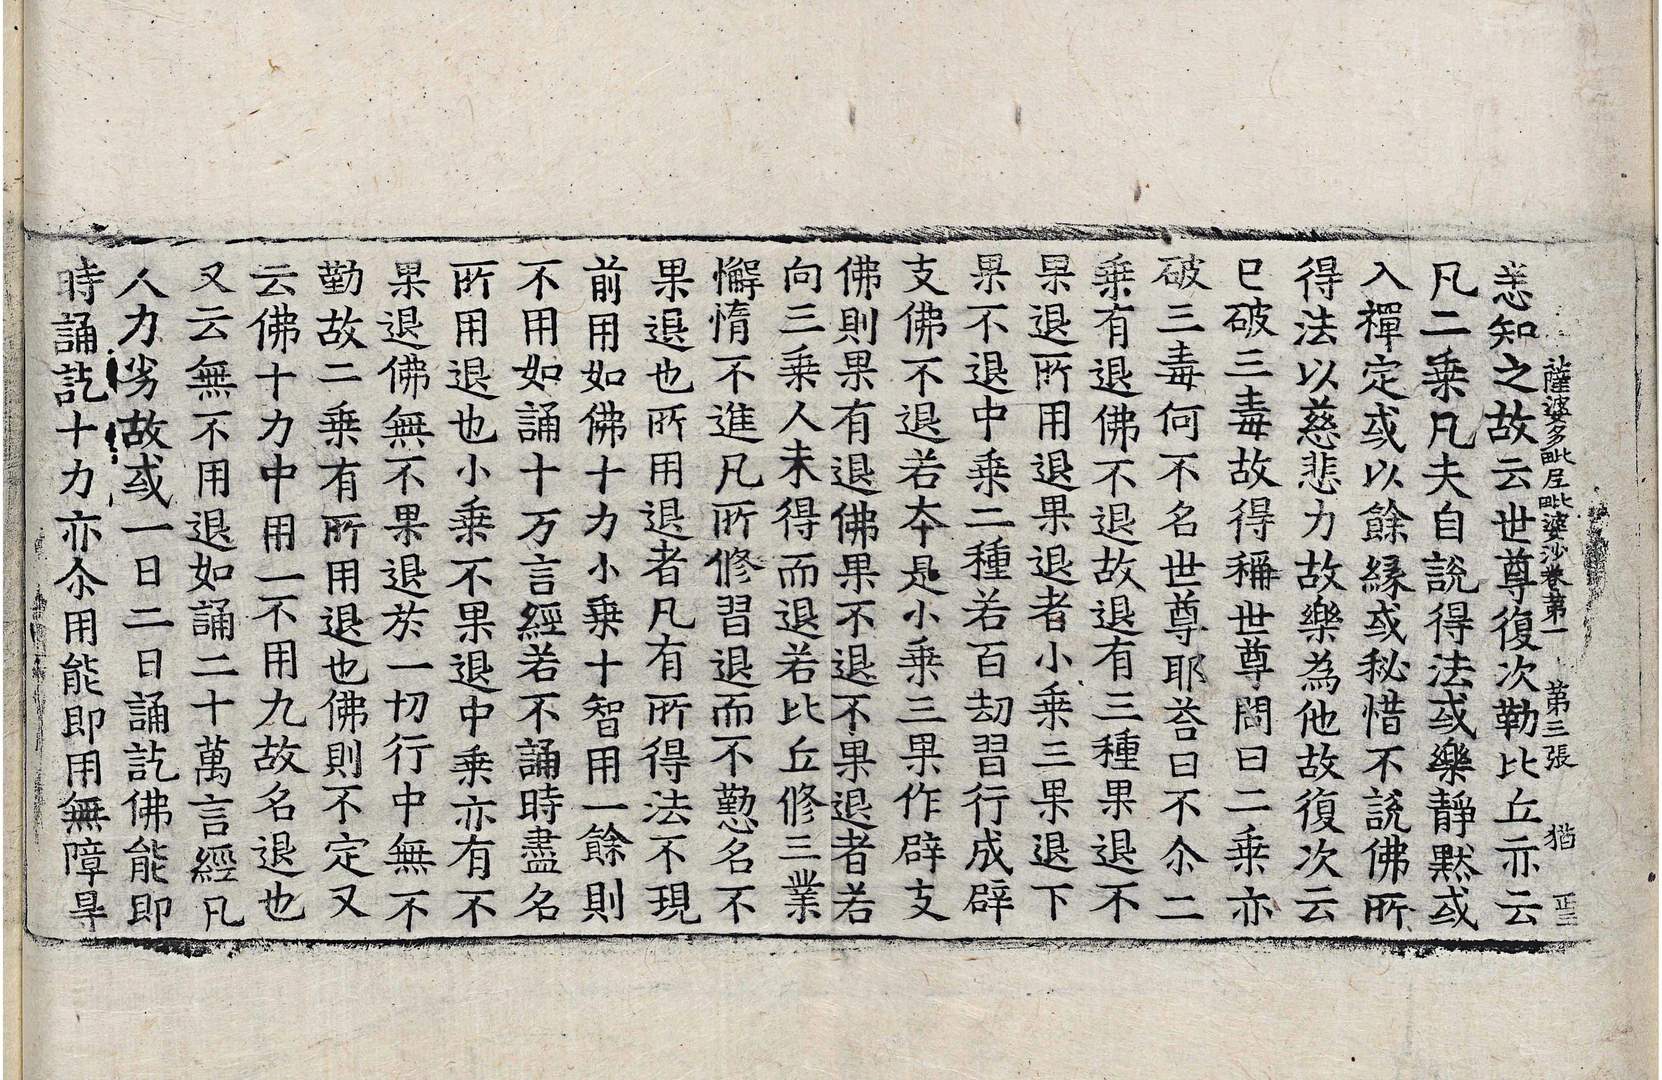 薩婆多毗尼毗婆沙卷第一 第三張 猶
悉知之故云世尊復次勒比丘亦云
凡二乗凡夫自説得法或樂靜黙或
入禪定或以餘緣或秘惜不説佛所
得法以慈悲力故樂為他故復次云
已破三毒故得稱世尊問曰二乗亦
破三毒何不名世尊耶荅曰不尒二
乗有退佛不退故退有三種果退不
果退所用退果退者小乗三果退下
果不退中乗二種若百劫習行成辟
支佛不退若夲是小乗三果作辟支
佛則果有退佛果不退不果退者若
向三乗人未得而退若比丘修三業
懈惰不進凡所修習退而不懃名不
果退也所用退者凡有所得法不現
前用如佛十力小乗十智用一餘則
不用如誦十万言經若不誦時盡名
所用退也小乗不果退中乗亦有不
果退佛無不果退於一切行中無不
勤故二乗有所用退也佛則不定又
云佛十力中用一不用九故名退也
又云無不用退如誦二十萬言經凡
人力劣故或一日二日誦訖佛能即
時誦訖十力亦尒用能即用無障㝵